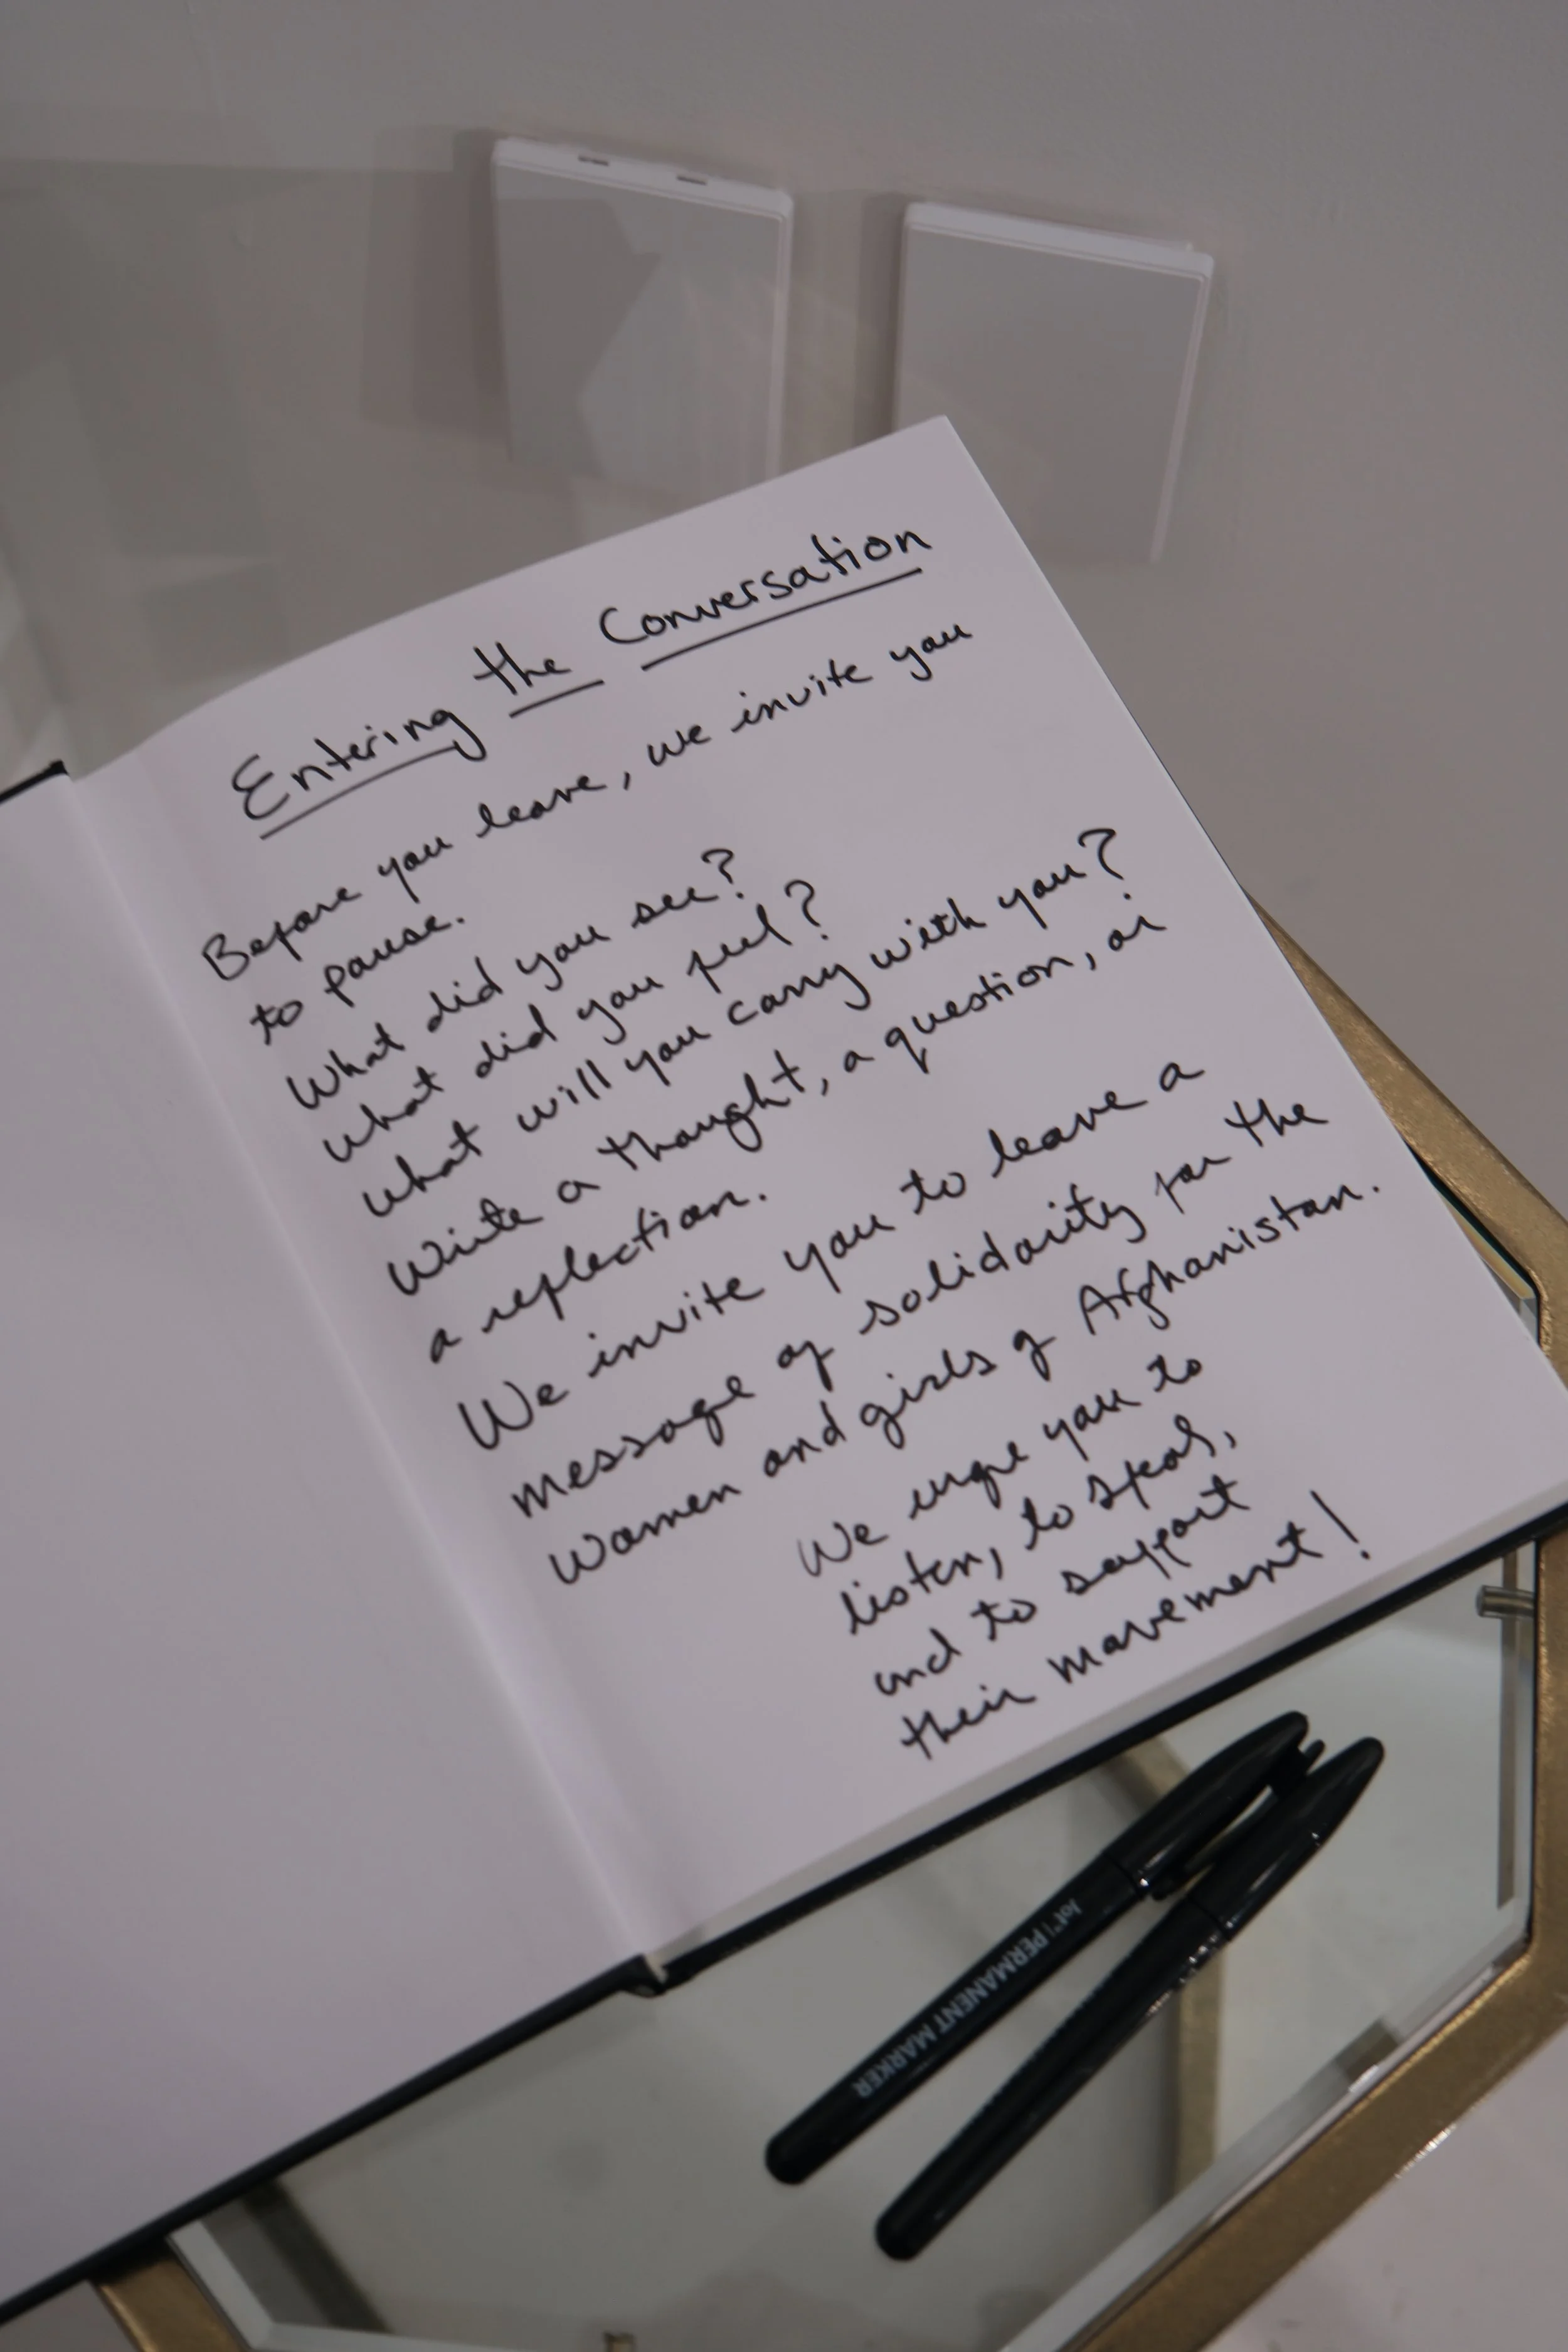 Entering the Conversation
Before you leave, we invite you
to pause.
What did you see?
What did you feel?
What will you carry with you?
Write a thought, a question, or
a reflection.
We invite you to leave a
message of solidarity for the
women and girls of Afghanistan.
We urge you to
listen, to speak,
and to support
their movement!
jot™ PERMANENT MARKER